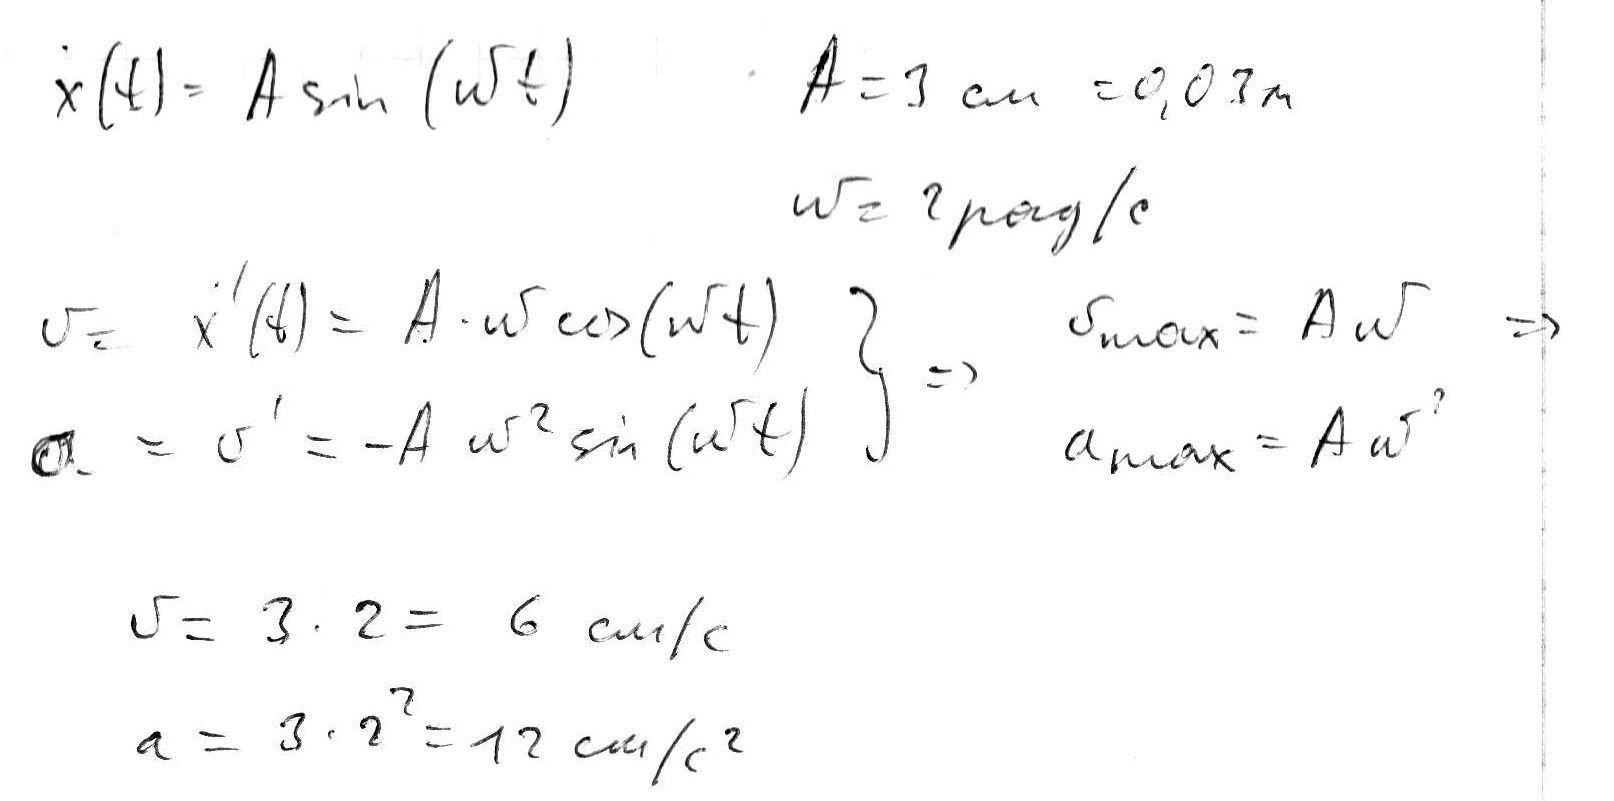 x(t) = A sin (ωt) A = 3 см = 0,03 м
ω = 2 рад/с
v = x'(t) = A · ω cos(ωt) } => vmax = Aω =>
a = v' = -A ω² sin(ωt) amax = Aω²
v = 3 · 2 = 6 см/с
a = 3 · 2² = 12 см/с²